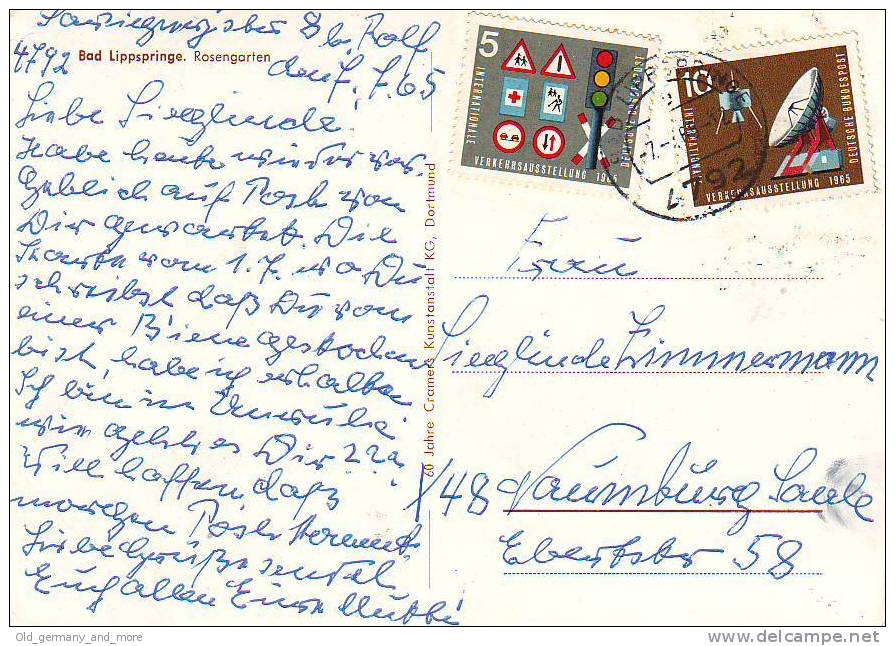 b. Rolf
4792 Bad Lippspringe. Rosengarten
den 7. 7. 65
Liebe Sieglinde!
Habe heute wieder ver-
geblich auf Post von
Dir gewartet. Die
Karte vom 1. 7. wo Du
schreibst daß Du von
einer Biene gestochen
bist, habe ich erhalten
Ich bin in Unruhe
wie geht es Dir ???
Will hoffen, daß
morgen Post kommt.
Liebe Grüße sendet
Euch allen Eure Mutti
60 Jahre Cramers Kunstanstalt KG, Dortmund
5
INTERNATIONALE
VERKEHRSAUSSTELLUNG 1965
DEUTSCHE BUNDESPOST
10
INTERNATIONALE
VERKEHRSAUSSTELLUNG 1965
DEUTSCHE BUNDESPOST
4792
Frau
Sieglinde Zimmermann
48 Naumburg Saale
Ebertstr 58
Old_germany_and_more
delcampe.net